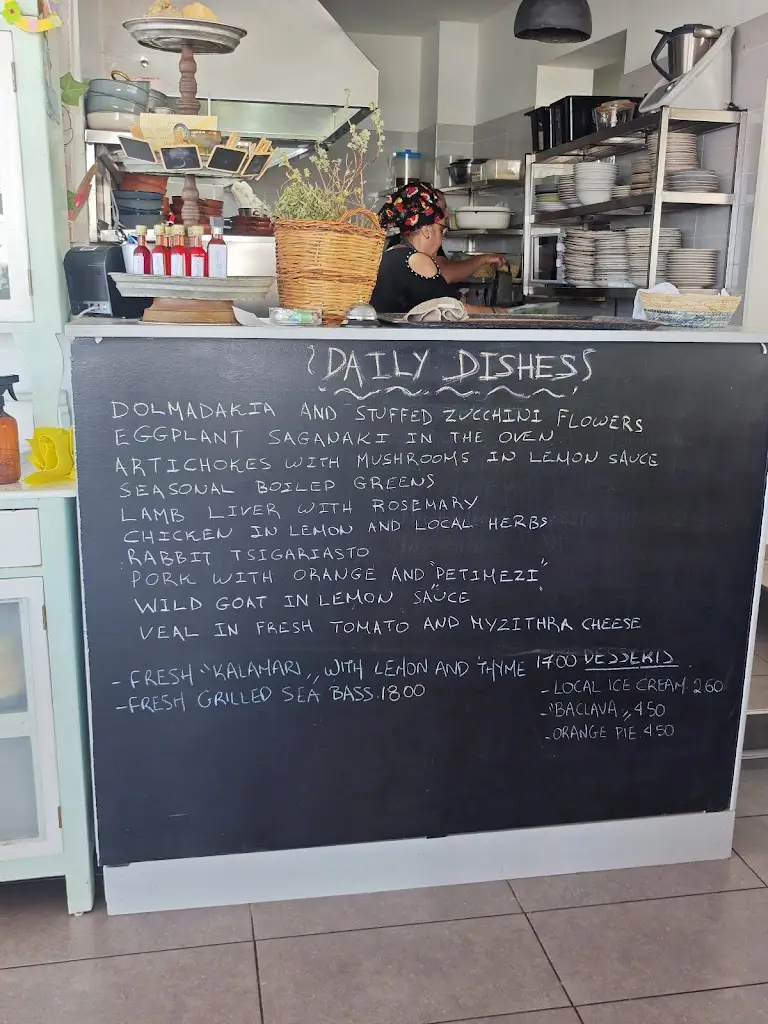 DAILY DISHES
DOLMADAKIA AND STUFFED ZUCCHINI FLOWERS
EGGPLANT SAGANAKI IN THE OVEN
ARTICHOKES WITH MUSHROOMS IN LEMON SAUCE
SEASONAL BOILED GREENS
LAMB LIVER WITH ROSEMARY
CHICKEN IN LEMON AND LOCAL HERBS
RABBIT TSIGARIASTO
PORK WITH ORANGE AND "PETIMEZI"
WILD GOAT IN LEMON SAUCE
VEAL IN FRESH TOMATO AND MYZITHRA CHEESE
- FRESH "KALAMARI,, WITH LEMON AND THYME 1700
- FRESH GRILLED SEA BASS 1800
DESSERTS
- LOCAL ICE CREAM 2.60
- "BACLAVA,, 4.50
- ORANGE PIE 4.50